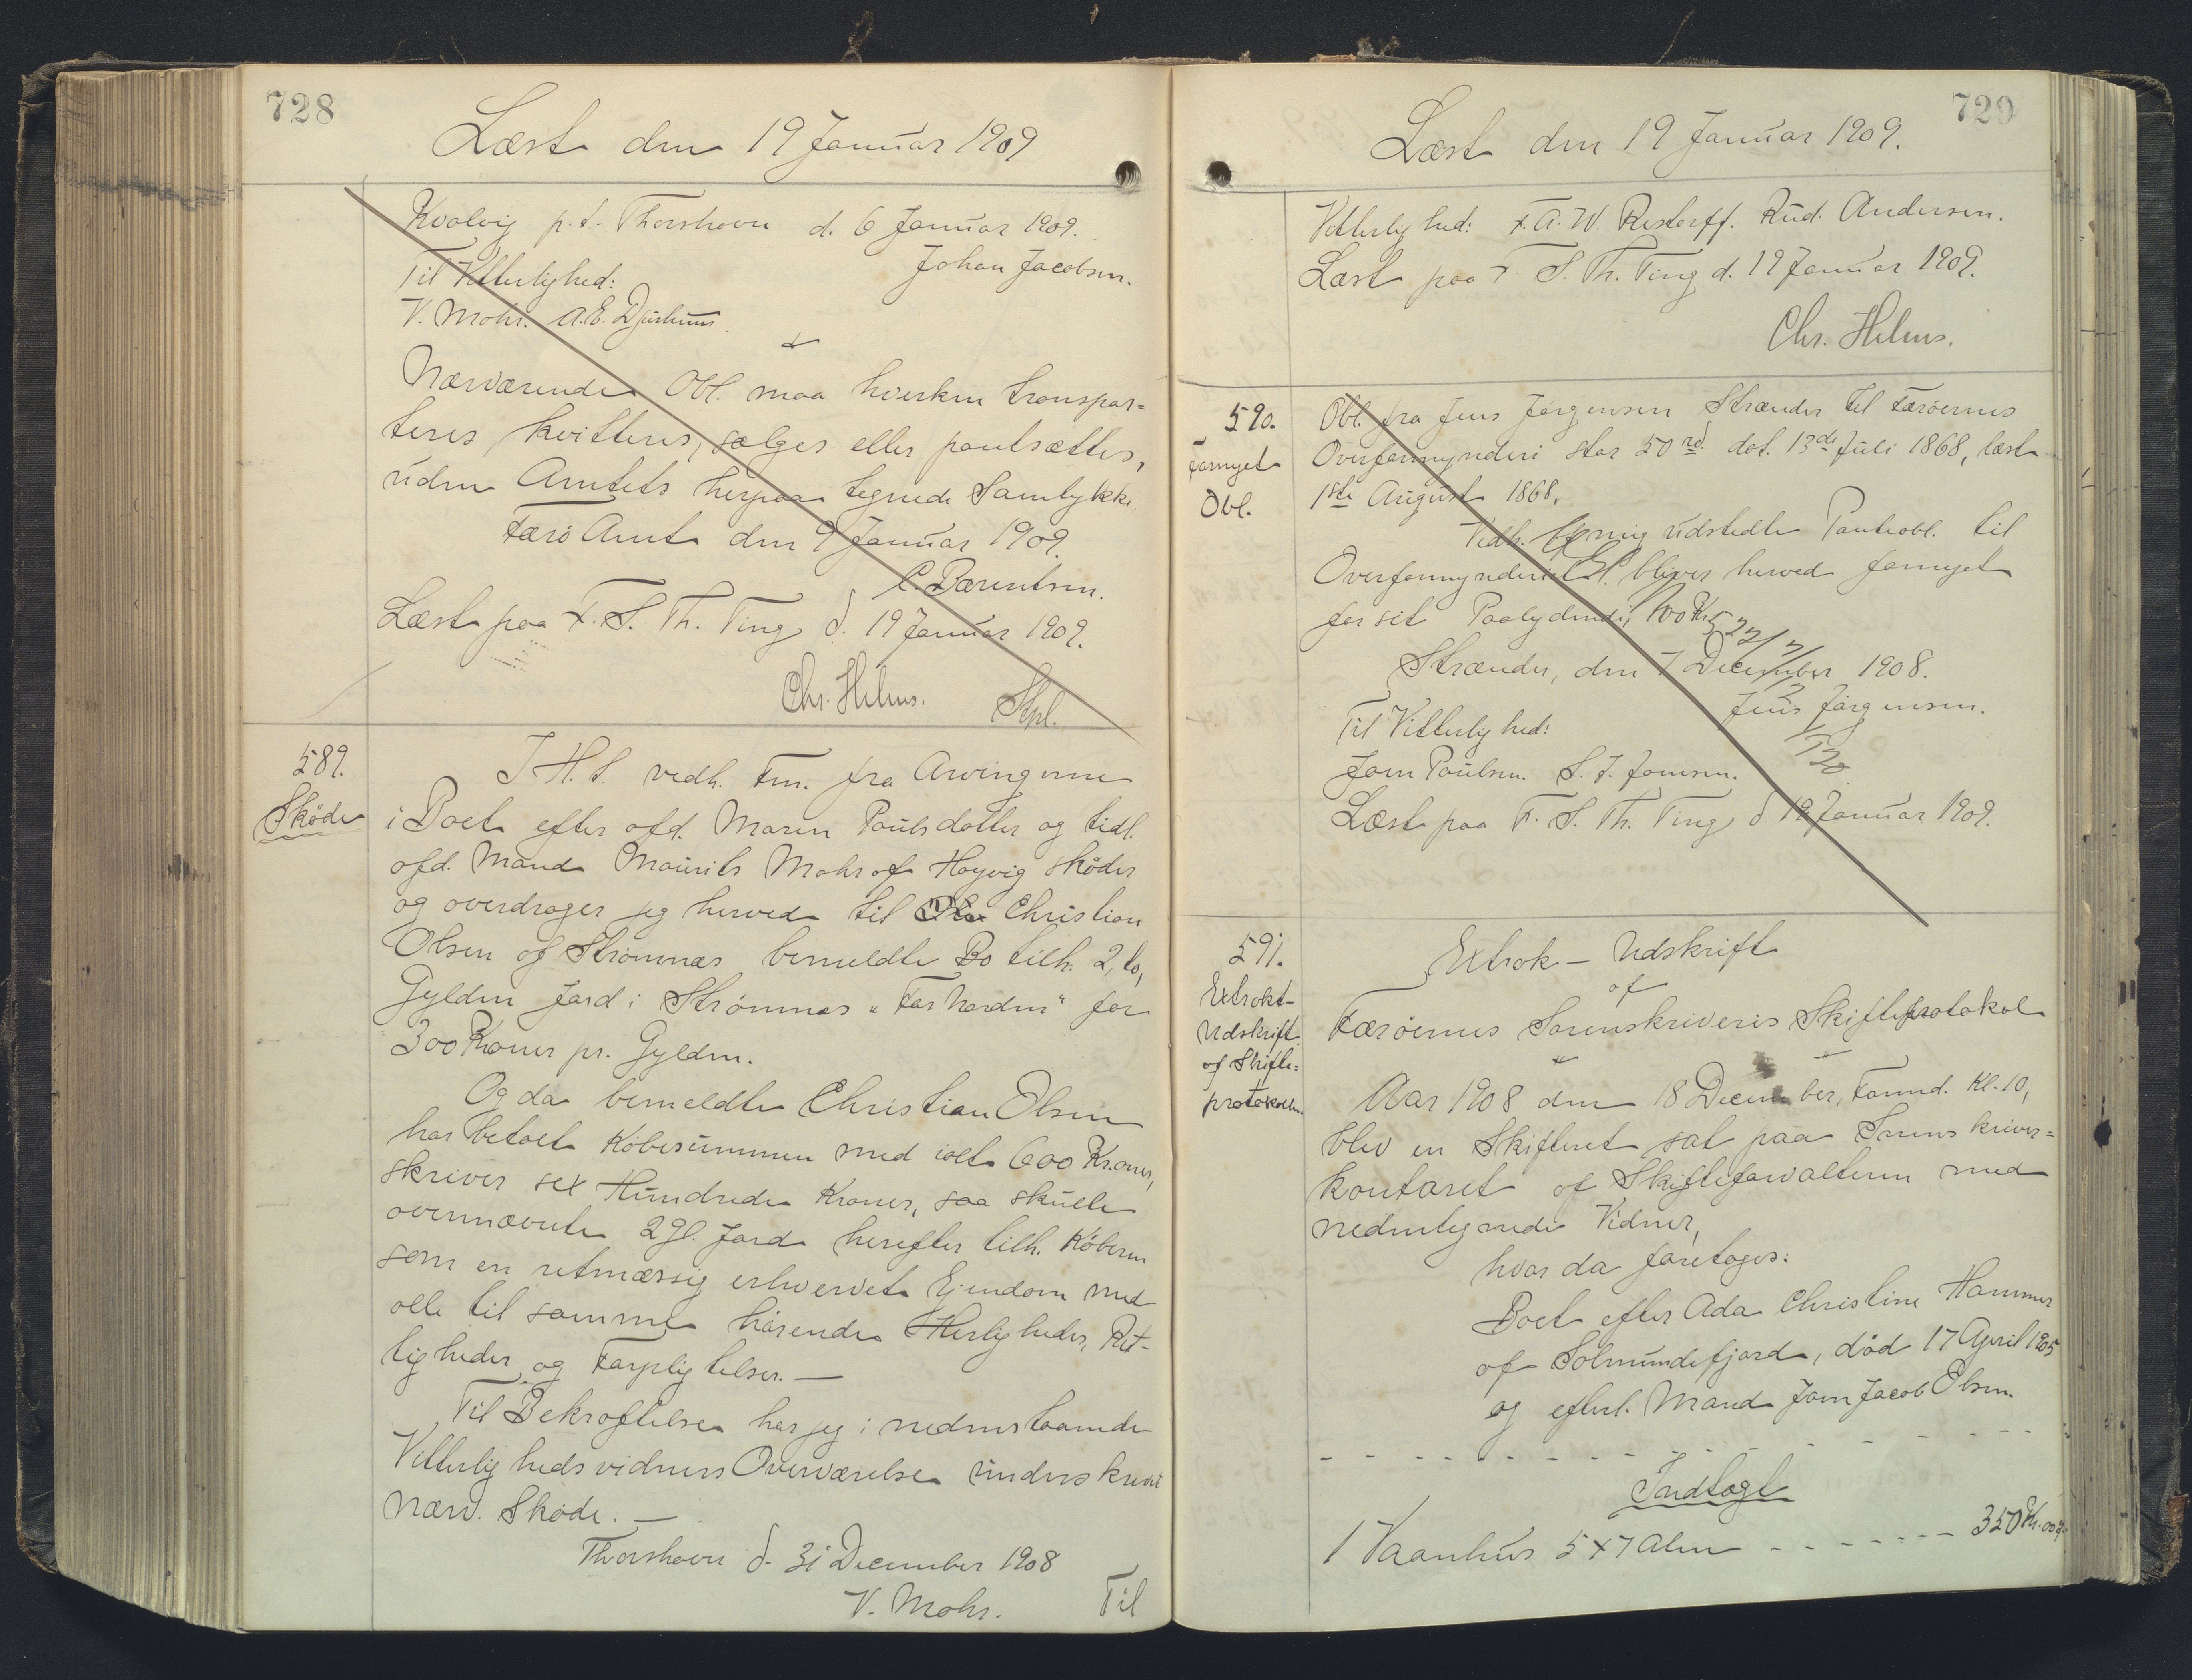 728
Læst den 19 Januar 1909
Kvalvig p.t. Thorshavn d. 6 Januar 1909.
Johan Jacobsen.
Til Vitterlighed:
V. Mohr. A.E. Djurhuus.
Nærværende Obl. maa hverken transpor=
teres, kvitteres, sælges eller pantsættes,
uden Amtets herpaa tegnede Samtykke.
Færø Amt den 9 Januar 1909.
C. Bærentsen.
Læst paa F. S. Th. Ting d. 19 Januar 1909.
Chr. Helms. Stpl.
589.
Skøde
I H. t. vedh. Fm. fra Arvingerne
i Boet efter afd. Maren Poulsdatter og tidl.
afd. Mand Mourits Mohr af Hoyvig skøder
og overdrager jeg herved til Christian
Olsen af Strømnæs bemeldte Bo tilh. 2, to,
Gylden Jord i Strømnæs "Før Norden" for
300 Kroner pr. Gylden.
Og da bemeldte Christian Olsen
har betalt Købesummen med ialt 600 Kroner,
skriver sex Hundrede Kroner, saa skulle
ovennævnte 2 gl. Jord herefter tilh. Køberen
som en retmæssig erhvervet Ejendom med
alle til samme hørende Herligheder, Ret-
tigheder og Forpligtelser. —
Til Bekræftelse har jeg i nedenstaaende
Vitterlighedsvidners Overværelse underskrevet
nærv. Skøde. —
Thorshavn d. 31 December 1908
V. Mohr.
Til
729
Læst den 19 Januar 1909.
Vitterlighed: F. A. W. Restorff. Rud. Andersen.
Læst paa F. S. Th. Ting d. 19 Januar 1909.
Chr. Helms.
590.
fornyet
Obl.
Obl. fra Jens Jørgensen Strænder til Færøernes
Overformynderi stor 50 rd. dat. 13de Juli 1868, læst
1ste August 1868.
Vedh. af mig udstedte Panteobl. til
Overformynderiet bliver herved fornyet
for sit Paalydende, 100 Kr.
Strænder, den 7 December 1908.
Jens Jørgensen.
Til Vitterlighed:
Joen Poulsen. S. J. Joensen.
Læst paa F. S. Th. Ting d. 19 Januar 1909.
591.
Extrakt-
Udskrift
af Skifte=
protokollen.
Extrak - Udskrift
af
Færøernes Sorenskriveris Skifteprotokol
Aar 1908 den 18 December, Formd. Kl. 10,
blev en Skifteret sat paa Sorenskriver=
kontoret af Skifteforvalteren med
nedentegnede Vidner,
hvor da foretoges:
Boet efter Ada Christine Hammer
af Solmundefjord, død 17 April 1905
og efterl. Mand Joen Jacob Olsen.
Indtægt
1 Vaanhus 5 x 7 Alen - - - - - - 350 Kr. 00